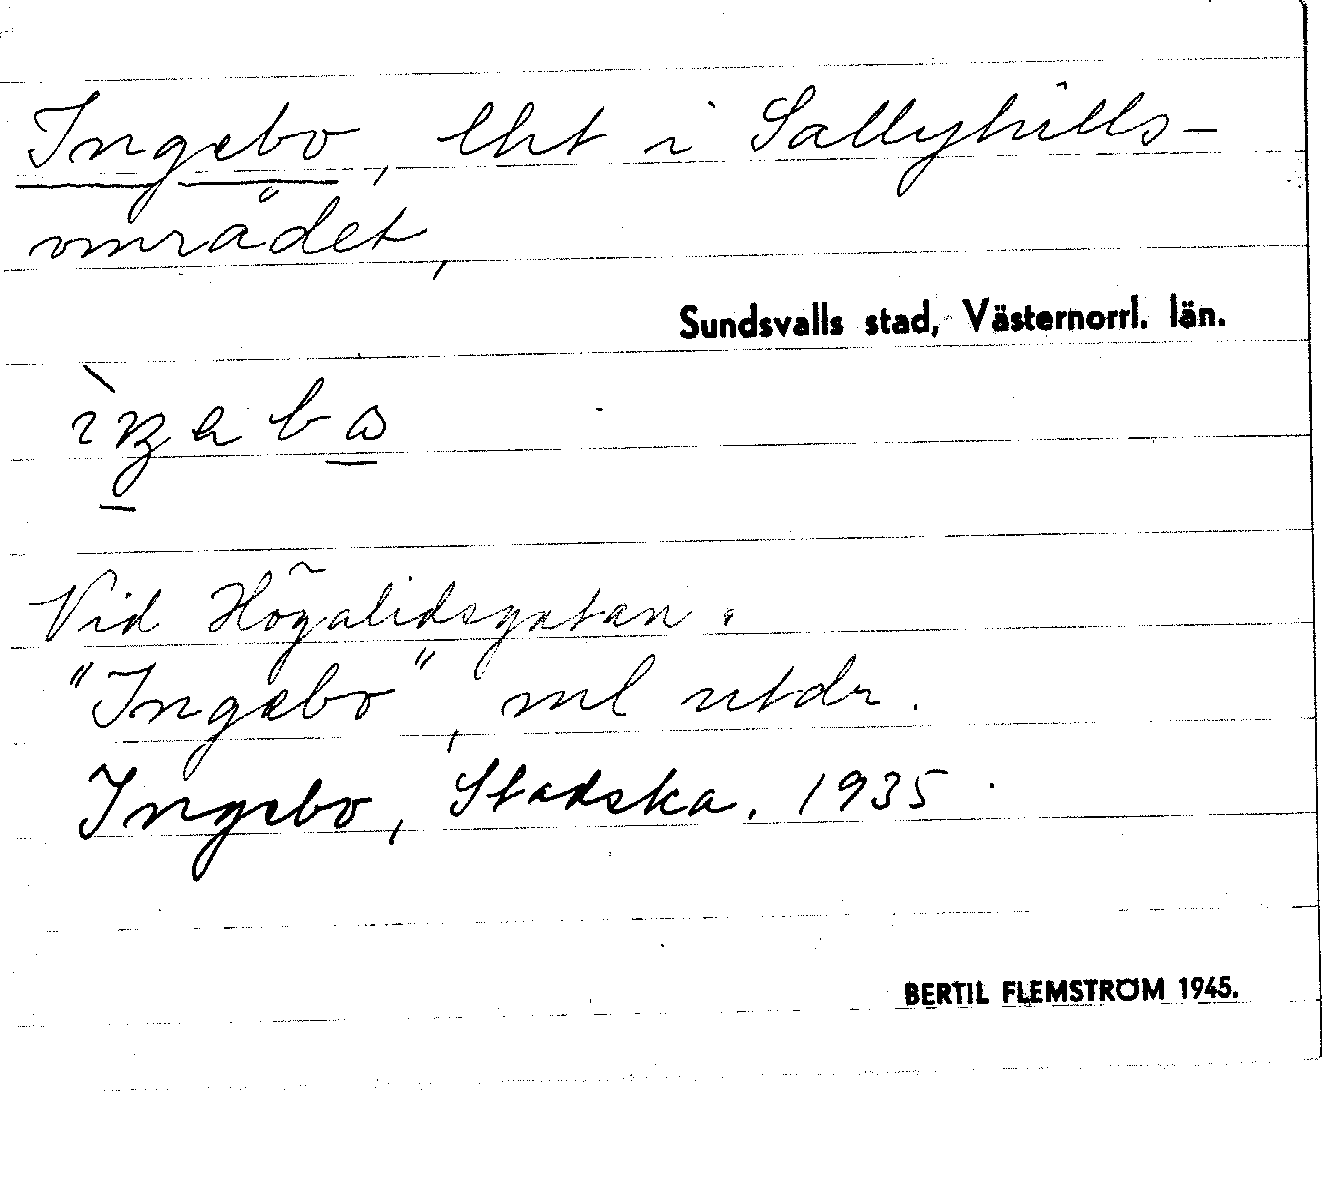 Ingebo, lht i Sallyhills-
området,
Sundsvalls stad, Västernorrl. län.
Vid Högalidsgatan.
"Ingebo", enl utdr.
Ingebo, Stadska. 1935.
BERTIL FLEMSTRÖM 1945.